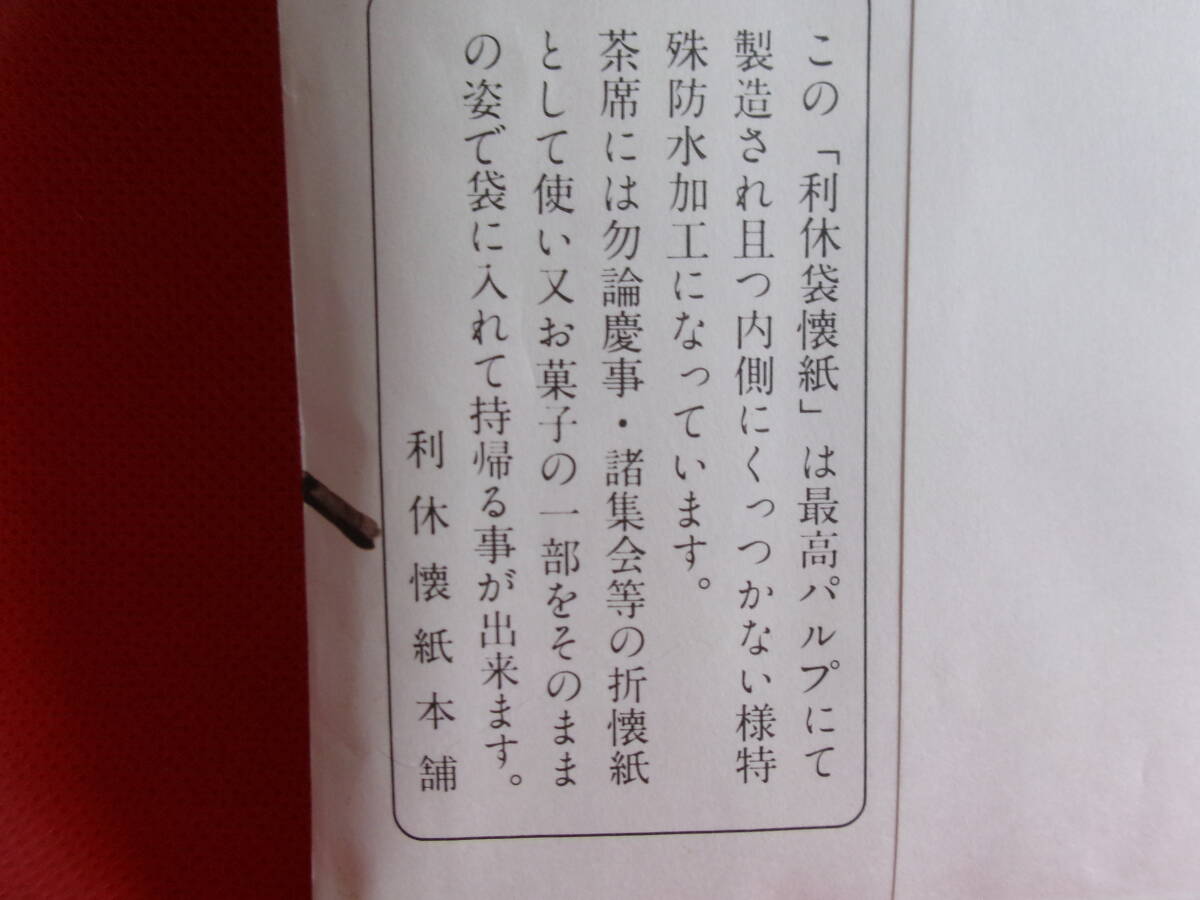 この「利休袋懐紙」は最高パルプにて
製造され且つ内側にくっつかない様特
殊防水加工になっています。
茶席には勿論慶事・諸集会等の折懐紙
として使い又お菓子の一部をそのまま
の姿で袋に入れて持帰る事が出来ます。
利休懐紙本舗